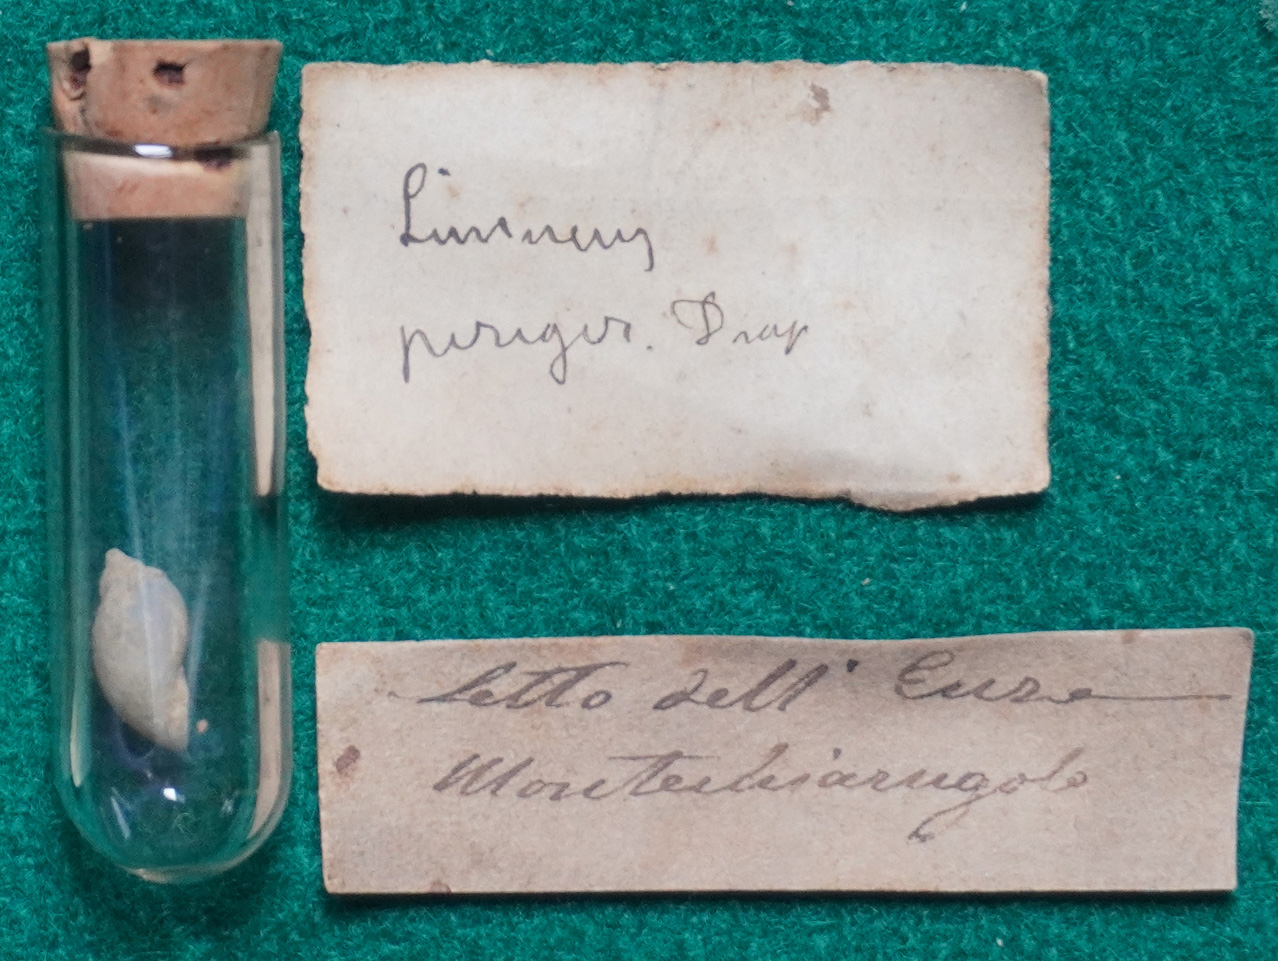 Limneus
pereger. Drap
Letto dell' Enza
Montechiarugolo